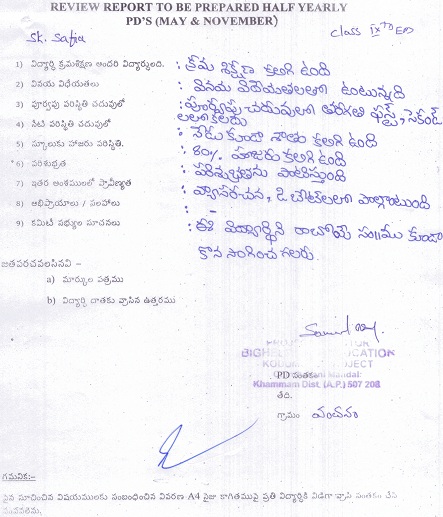 REVIEW REPORT TO BE PREPARED HALF YEARLY
PD'S (MAY & NOVEMBER)
SK. Safia
class IX TO ED
1) విద్యార్థి క్రమశిక్షణ అందరి విద్యార్థులది. : క్రమ శిక్షణ కలిగి ఉంది
2) వినయ విధేయతలు : వినయ విధేయతలతో ఉంటున్నది
3) పూర్వపు పరిస్థితి చదువులో : పూర్వపు చదువులో తరగతి ఫస్ట్, సెకండ్
4) నేటి పరిస్థితి చదువులో : నేడు కుడా శాతం కలిగి ఉంది
5) స్కూలుకు హాజరు పరిస్థితి. : 80% హాజరు కలిగి ఉంది
6) పరిశుభ్రత : పరిశుభ్రతను పాటిస్తుంది
7) ఇతర అంశములలో ప్రావీణ్యత : వ్యాసరచన, పోటీలలో పాల్గొంటుంది
8) అభిప్రాయాలు / సలహాలు : -
9) కమిటీ సభ్యుల సూచనలు : ఈ విద్యార్థిని రాబోయే సం॥ము కుడా
కొన సాగించ గలరు.
జతపరచవలసినవి -
a) మార్కుల పత్రము
b) విద్యార్థి దాతకు వ్రాసిన ఉత్తరము
PD సంతకం
Mandal:
Khammam Dist. (A.P.) 507 208
తేది.
గ్రామం
గమనిక:-
పైన సూచించిన విషయములకు సంబంధించిన వివరణ A4 సైజు కాగితముపై ప్రతి విద్యార్థికి విడిగా వ్రాసి సంతకం చేసి